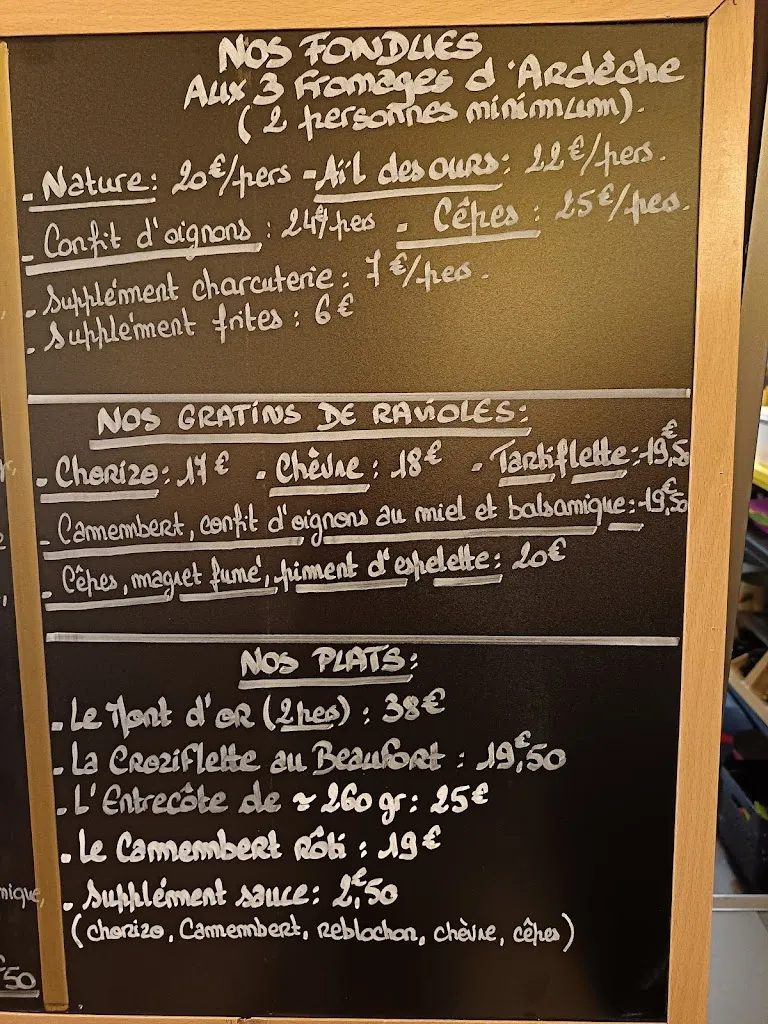 NOS FONDUES
AUX 3 FROMAGES d'ARDÈCHE
(2 personnes minimum).
- Nature: 20€/pers - Aïl des ours: 22€/pers.
- Confit d'oignons: 24€/pes - Cêpes: 25€/pes.
- Supplément charcuterie: 7€/pes.
- Supplément frites: 6€
NOS GRATINS DE RAVIOLES:
- Chorizo: 17€ - Chèvre: 18€ - Tartiflette: 19€,5
- Camembert, confit d'oignons au miel et balsamique: 19€,50
- Cêpes, magret fumé, piment d'espelette: 20€
NOS PLATS:
- Le Mont d'OR (2pes): 38€
- La Croziflette au Beaufort: 19€,50
- L'Entrecôte de ~ 260 gr: 25€
- Le Camembert rôti: 19€
- Supplément sauce: 2€,50
(chorizo, Camembert, reblochon, chèvre, cêpes)
mique,
€50